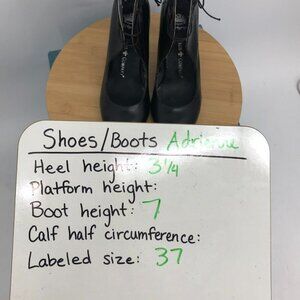 Shoes/Boots Adrienne
Heel height: 3 1/4
Platform height:
Boot height: 7
Calf half circumference:
Labeled size: 37